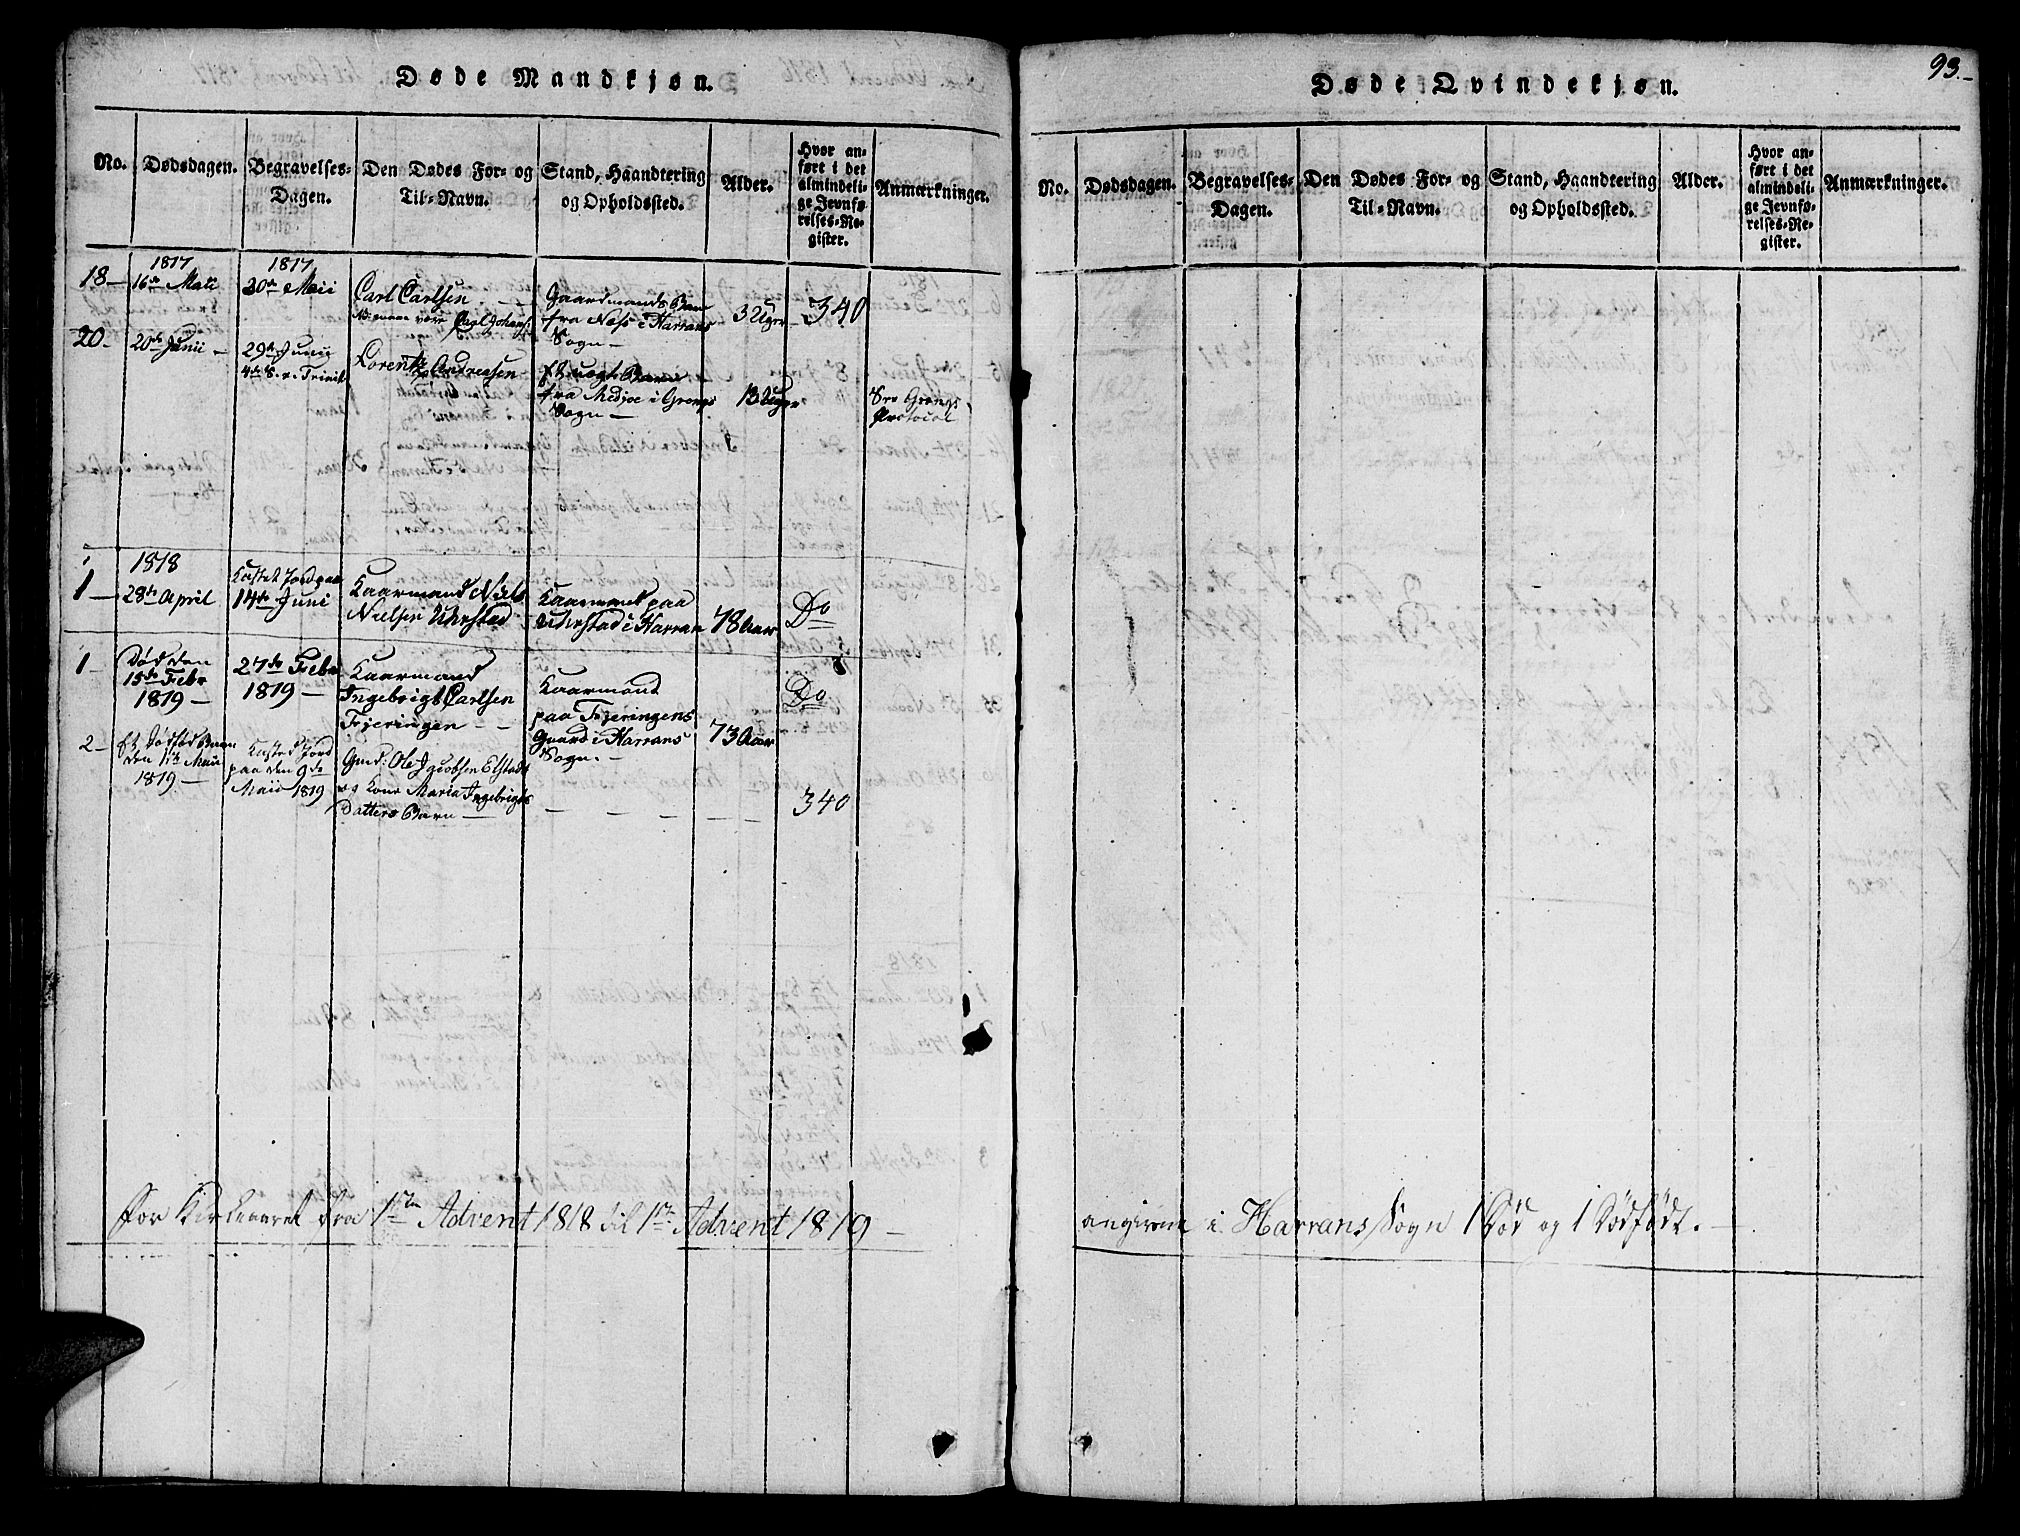 Døde Mandkjøn.
No.
Dødsdagen.
Begravelses-
Dagen.
Den Dødes For- og
Til-Navn.
Stand, Haandtering
og Opholdssted.
Alder.
Hvor an-
ført i det
almindeli-
ge Jevnfø-
relses-Re-
gister.
Anmærkninger.
18-
1817
16de Maii
1817
20de Maii
Carl Carlsen
Gaardmands Barn
fra Næss i Harrans
Sogn-
3 Uger
340
20-
20de Junii -
29de Junii
4de S. e. Trinit
Lorentz Andreasen
fra Medjoe i Grongs
Sogn-
13 Uger
See Grongs
Protocol
1
1818
28de April
Kastet Jord paa
14de Juni
Kaarmand Niels
Nielsen Uhrstad
Kaarmand paa
Uhrstad i Harran
78 Aar
Do
1-
Død den
15de Febr
1819-
27de Febr
1819-
Kaarmand
Ingebrigt Carlsen
Fjeringen - -
Kaarmand
paa Fjeringens
Gaard i Harrans
Sogn.-
73 Aar
Do
2-
Et Dødfød Barn
den 1ste Maii
1819-
Kasted Jord
paa den 9de
Maii 1819
Gmd: Ole Jacobsen Elstads
og Kone Maria Ingebrigts
Datters Barn-
340
For Kirkeaaret fra 1ste Advent 1818 til 1ste Advent 1819-
93.-
Døde Qvindekjøn.
No.
Dødsdagen.
Begravelses-
Dagen.
Den Dødes For- og
Til-Navn.
Stand, Haandtering
og Opholdssted.
Alder.
Hvor an-
ført i det
almindeli-
ge Jevnfø-
relses-Re-
gister.
Anmærkninger.
angivne i Harrans Sogn 1 Død og 1 Dødfødt.-